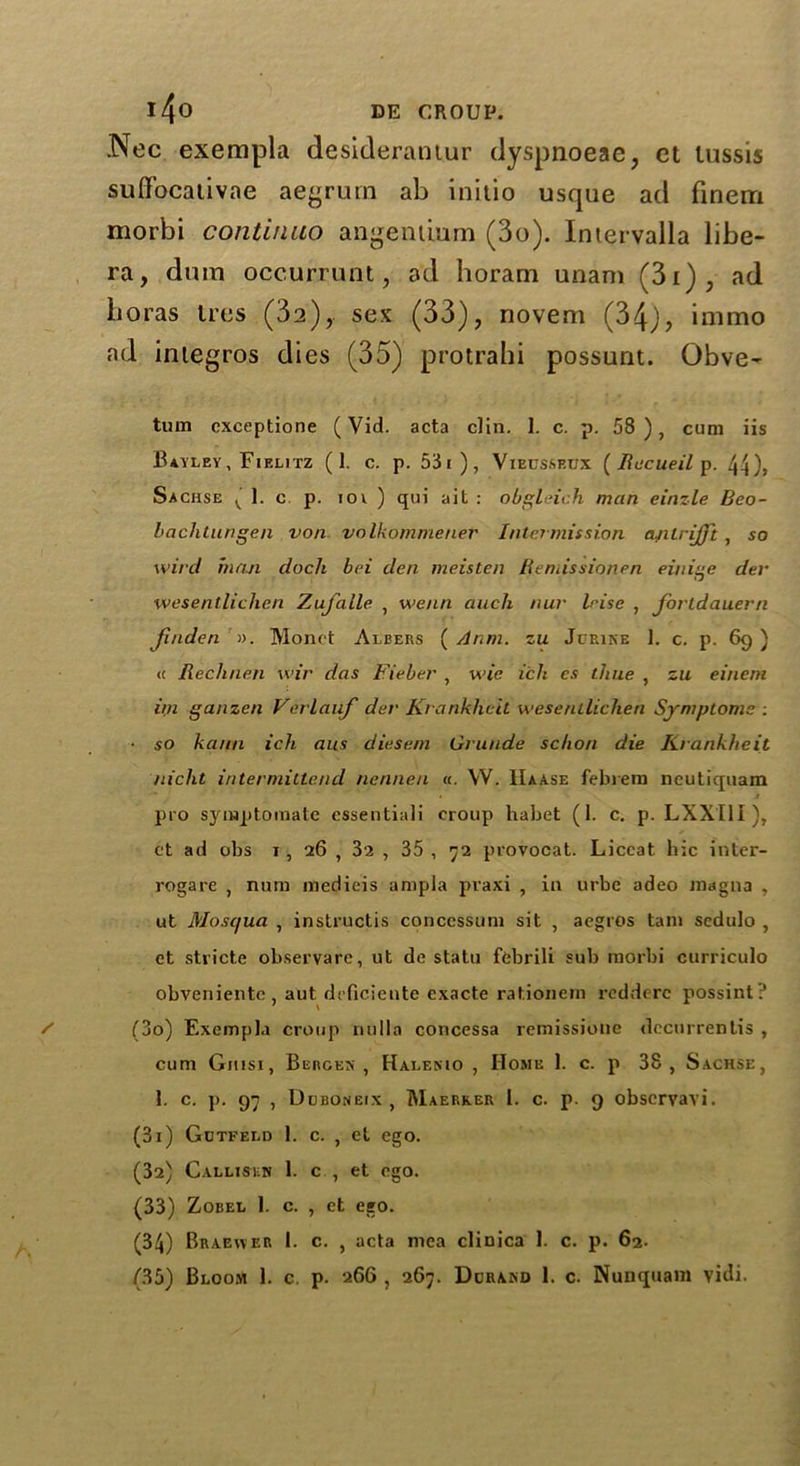 140 DE CROUP.
Nec exempla desiderantur dyspnoeae, et tussis
suffocativae aegrum ab initio usque ad finem
morbi continuo angentium (30). Intervalla libe-
ra, dum occurrunt, ad horam unam (31), ad
horas tres (32), sex (33), novem (34), immo
ad integros dies (35) protrahi possunt. Obve-
tum exceptione (Vid. acta clin. l. c. p. 58), cum iis
BAYLEY, FIELITZ (l. c. p. 531), VIEUSSEUX (Recueil p. 44),
SACHSE (l. c. p. 101) qui ait : obgleich man einzle Beo-
bachtungen von volkommener Intermission antrifft, so
wird man doch bei den meisten Remissionen einige der
wesentlichen Zufalle, wenn auch nur leise, fortdauern
finden ». Monet ALBERS (Anm. zu JURINE l. c. p. 69)
« Rechnen wir das Fieber, wie ich es thue, zu einem
im ganzen Verlauf der Krankheit wesentlichen Symptome :
so kann ich aus diesem Grunde schon die Krankheit
nicht intermittend nennen «. W. HAASE febrem neutiquam
pro symptomate essentiali croup habet (l. c. p. LXXIII),
et ad obs 1, 26, 32, 35, 72 provocat. Liceat hic inter-
rogare, num medicis ampla praxi, in urbe adeo magna,
ut Mosqua, instructis concessum sit, aegros tam sedulo,
et stricte observare, ut de statu febrili sub morbi curriculo
obveniente, aut deficiente exacte rationem reddere possint?
(30) Exempla croup nulla concessa remissione decurrentis,
cum GHISI, BERGEN, HALENIO, HOME l. c. p 38, SACHSE,
l. c. p. 97, DUBONEIX, MAERKER l. c. p. 9 observavi.
(31) GUTFELD l. c., et ego.
(32) CALLISEN l. c., et ego.
(33) ZOBEL l. c., et ego.
(34) BRAEWER l. c., acta mea clinica l. c. p. 62.
(35) BLOOM l. c. p. 266, 267. DURAND l. c. Nunquam vidi.